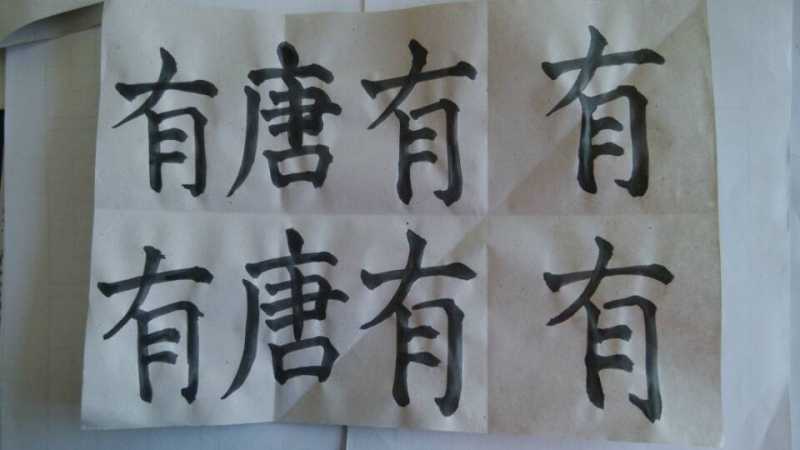 有唐有有
有唐有有